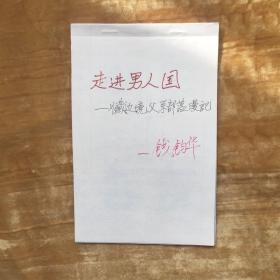 走进男人国
——滇边境父系部落漫记
—钱钧华